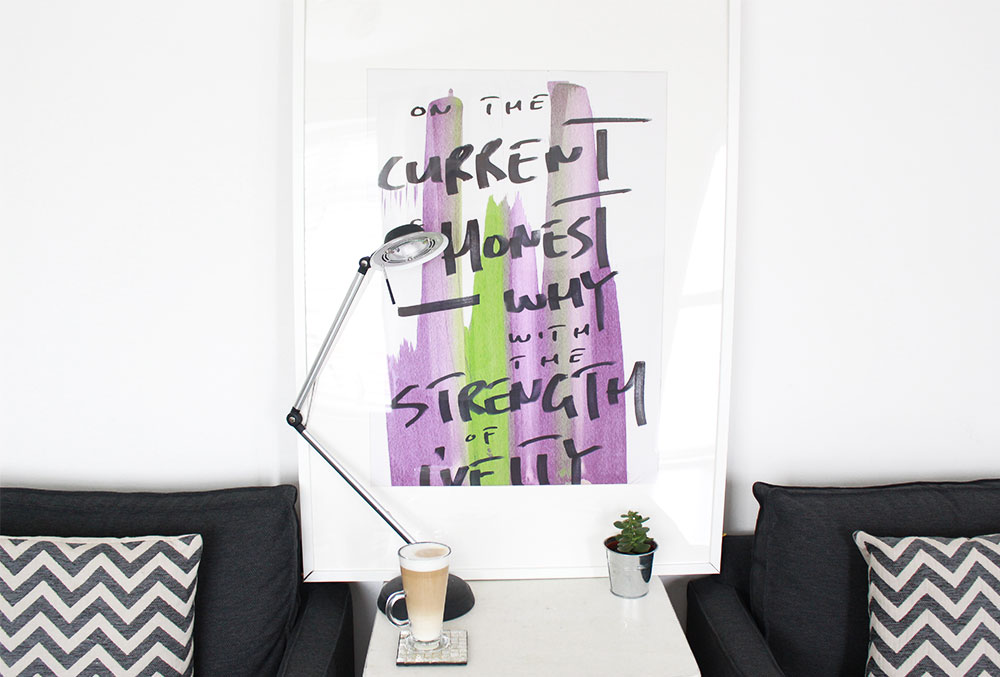 ON THE
CURRENT
HONEST
WHY
WITH
THE
STRENGTH
OF